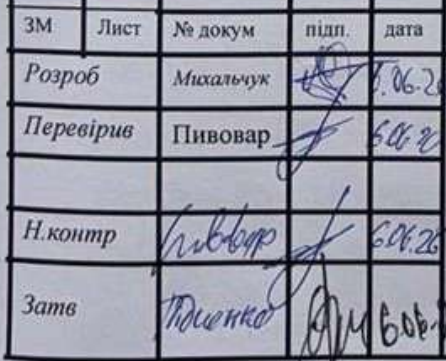 ЗМ Лист № докум підп. дата
Розроб Михальчук
Перевірив Пивовар 6.06.20
Н.контр Пивовар 6.06.20
Затв